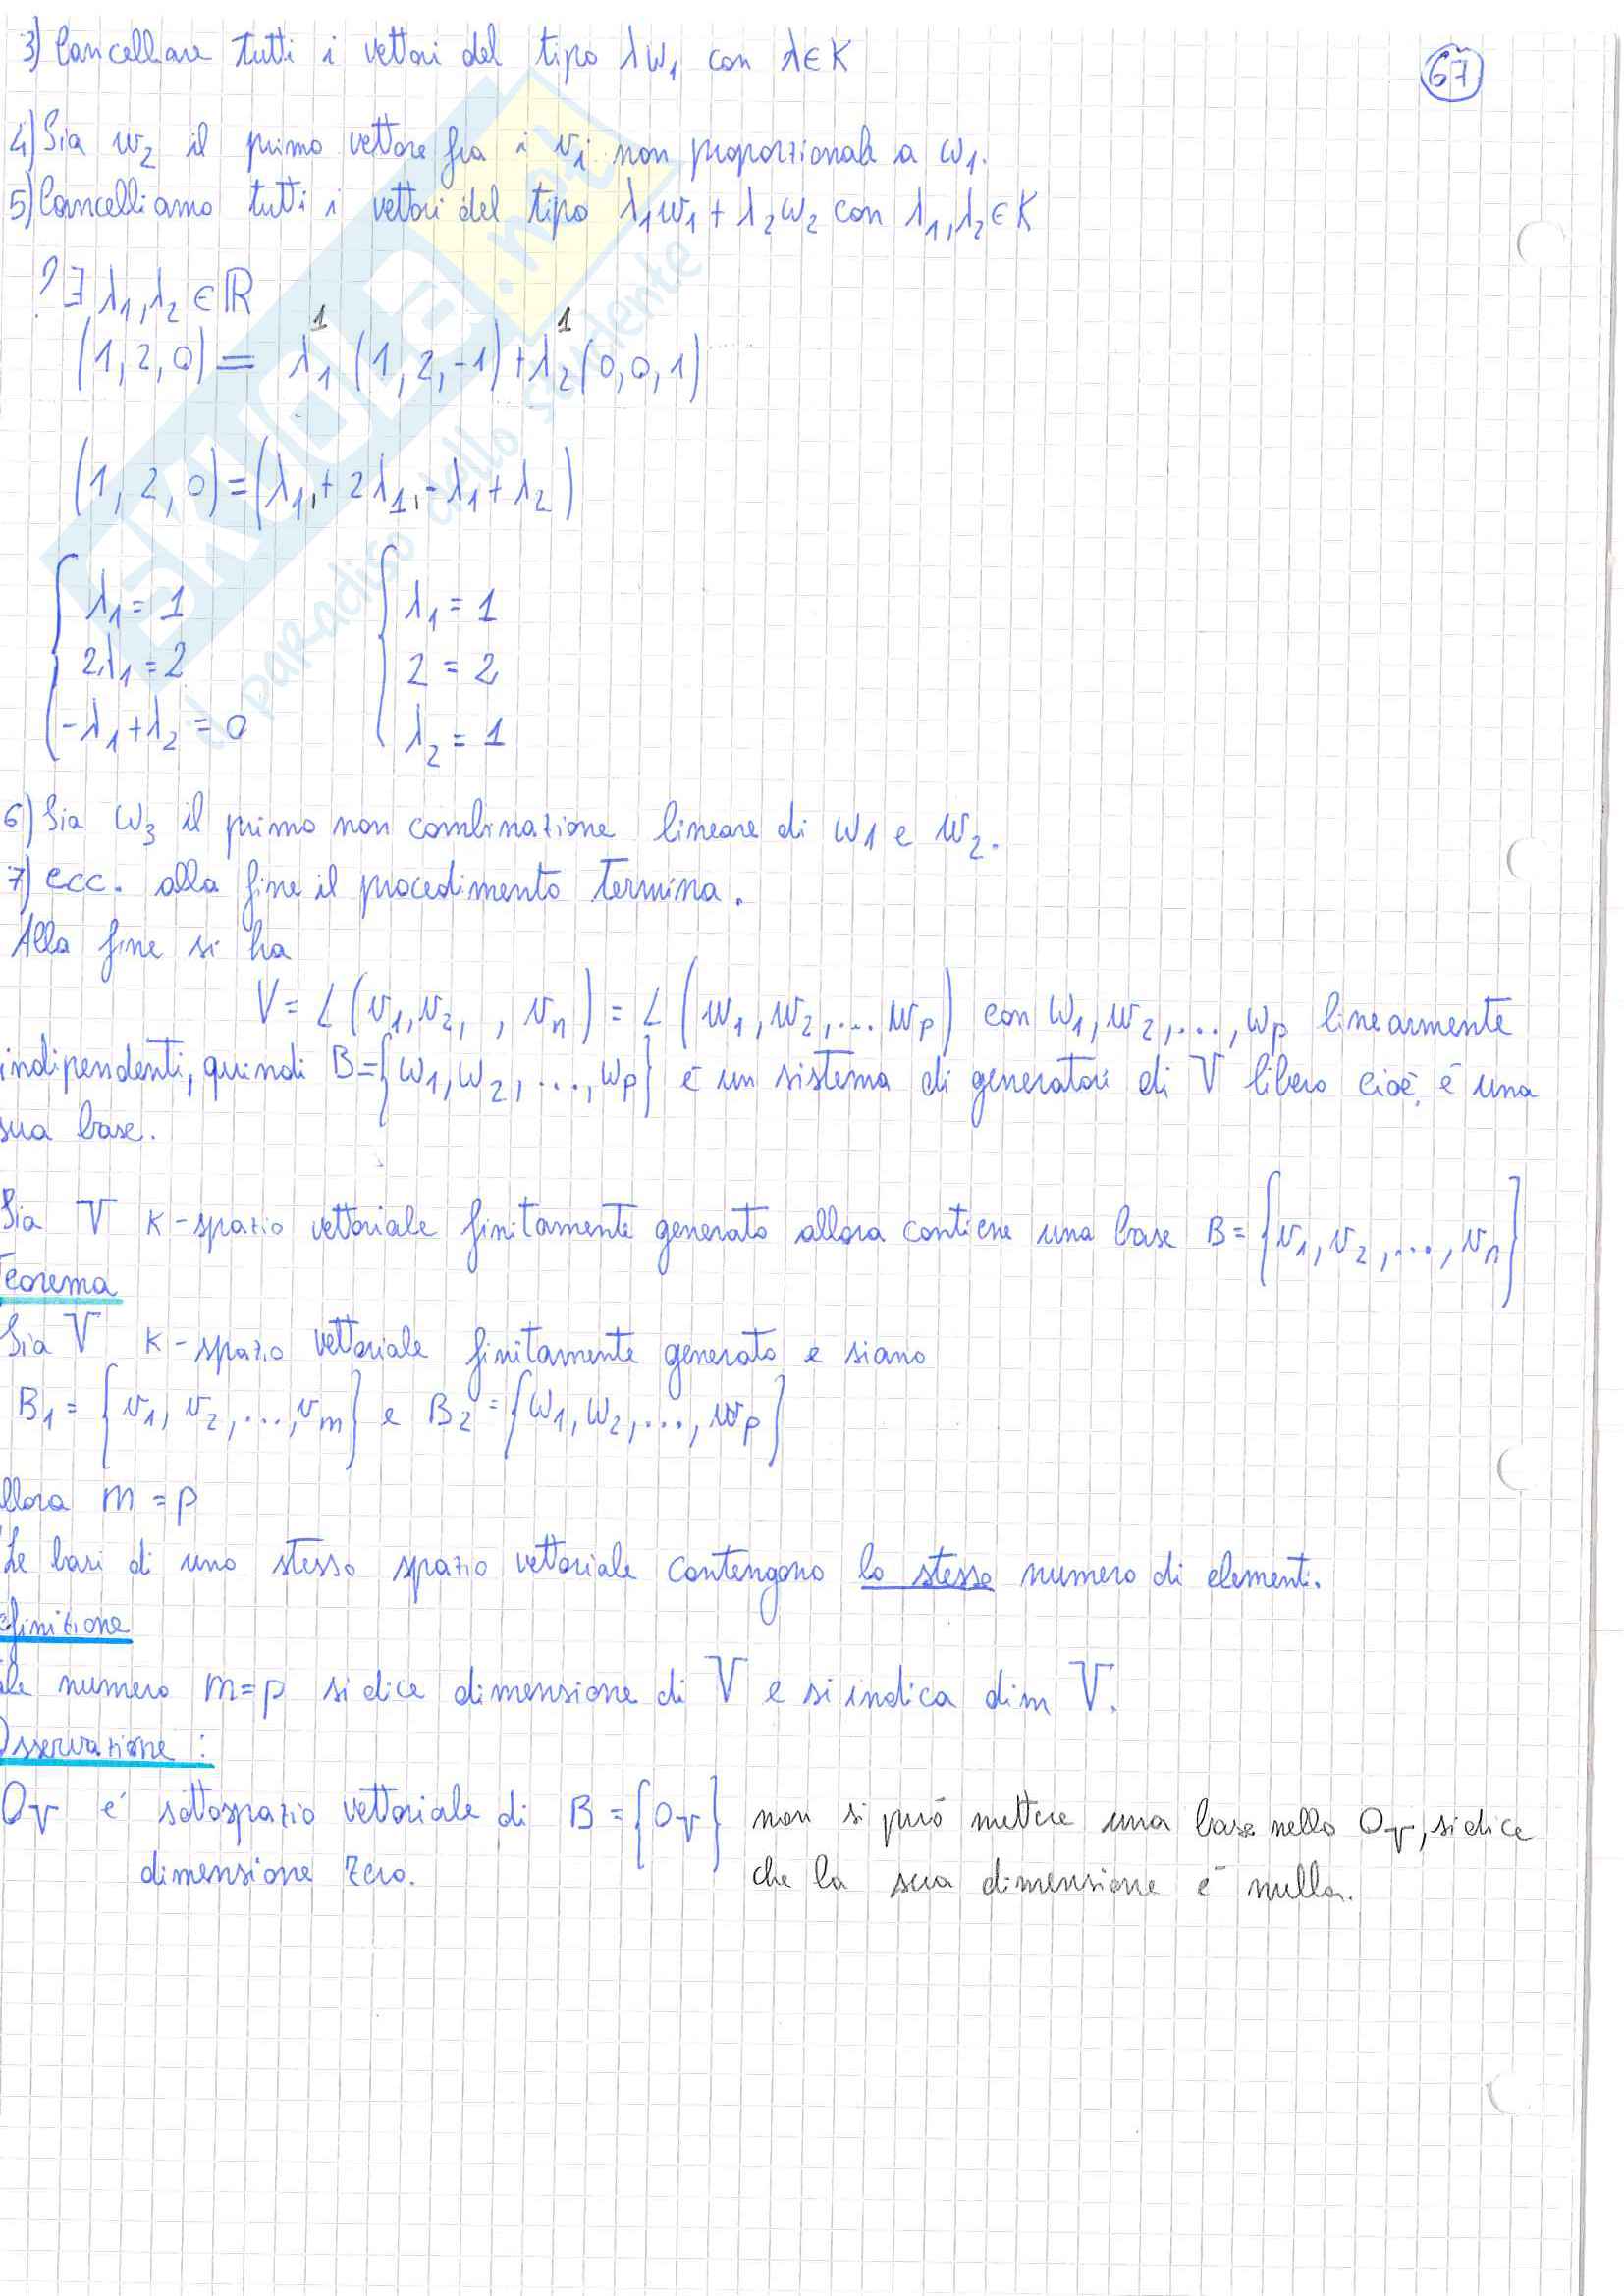 3) Cancellare tutti i vettori del tipo λw₁ con λ∈K
67
4) Sia w₂ il primo vettore fra i vᵢ non proporzionale a w₁.
5) Cancelliamo tutti i vettori del tipo λ₁w₁ + λ₂w₂ con λ₁,λ₂∈K
? ∃ λ₁,λ₂ ∈ ℝ
1 1
(1,2,0) = λ₁ (1,2,-1) + λ₂ (0,0,1)
(1,2,0) = (λ₁,+ 2λ₁,-λ₁+λ₂)
λ₁ = 1 λ₁ = 1
2λ₁ = 2 2 = 2
-λ₁+λ₂ = 0 λ₂ = 1
6) Sia w₃ il primo non combinazione lineare di w₁ e w₂.
7) ecc. alla fine il procedimento termina.
Alla fine si ha
V = L (v₁,v₂, , vₙ) = L (w₁,w₂,... wₚ) con w₁,w₂,...,wₚ linearmente
indipendenti, quindi B={w₁,w₂,...,wₚ} è un sistema di generatori di V libero cioè, è una
sua base.
Sia V K-spazio vettoriale finitamente generato allora contiene una base B = {v₁,v₂,...,vₙ}
Teorema
Sia V K-spazio vettoriale finitamente generato e siano
B₁ = {v₁,v₂,...,vₘ} e B₂ = {w₁,w₂,...,wₚ}
llora m = p
Le basi di uno stesso spazio vettoriale contengono lo stesso numero di elementi.
efinizione
ale numero m=p si dice dimensione di V e si indica dim V.
Osservazione :
O_V è sottospazio vettoriale di B = {O_V} non si può mettere una base nello O_V, si dice
dimensione zero. che la sua dimensione è nulla.
SKUOLA.net
il paradiso dello studente